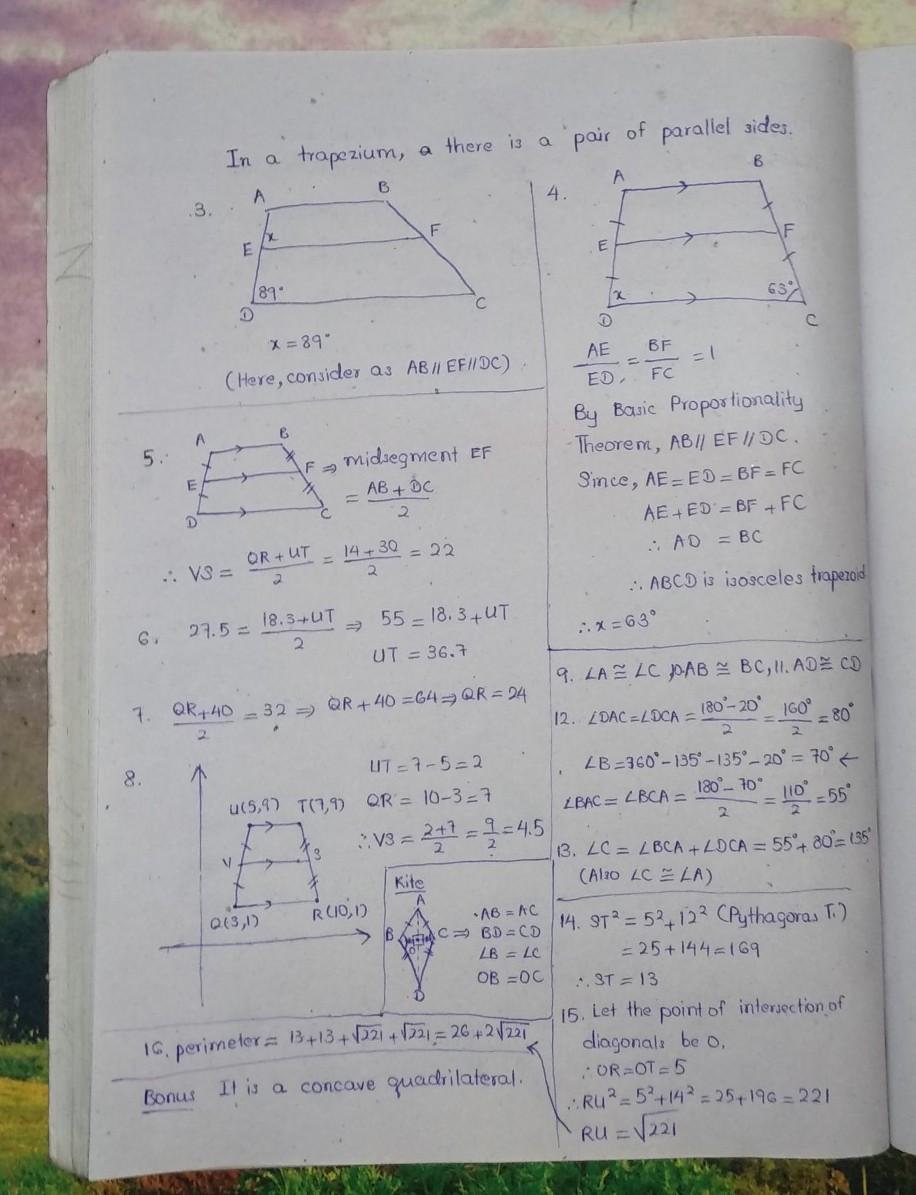 In a trapezium, a there is a pair of parallel sides.
3.
A
B
E
x
F
89°
D
C
x = 89°
(Here, consider as AB // EF // DC)
4.
A
B
E
F
x
63°
D
C
AE/ED = BF/FC = 1
By Basic Proportionality
Theorem, AB // EF // DC.
Since, AE = ED = BF = FC
AE + ED = BF + FC
∴ AD = BC
∴ ABCD is isosceles trapezoid
∴ x = 63°
5.
A
B
E
F
D
C
⇒ midsegment EF
= (AB + DC)/2
∴ VS = (QR + UT)/2 = (14 + 30)/2 = 22
6. 27.5 = (18.3 + UT)/2 ⇒ 55 = 18.3 + UT
UT = 36.7
7. (QR + 40)/2 = 32 ⇒ QR + 40 = 64 ⇒ QR = 24
8.
U(5,9) T(7,9)
V
S
Q(3,1)
R(10,1)
UT = 7 - 5 = 2
QR = 10 - 3 = 7
∴ VS = (2 + 7)/2 = 9/2 = 4.5
Kite
A
B
C
O
D
AB = AC
⇒ BD = CD
∠B = ∠C
OB = OC
9. ∠A ≅ ∠C 10. AB ≅ BC, 11. AD ≅ CD
12. ∠DAC = ∠DCA = (180° - 20°)/2 = 160°/2 = 80°
∠B = 360° - 135° - 135° - 20° = 70° ←
∠BAC = ∠BCA = (180° - 70°)/2 = 110°/2 = 55°
13. ∠C = ∠BCA + ∠DCA = 55° + 80° = 135°
(Also ∠C ≅ ∠A)
14. ST² = 5² + 12² (Pythagoras T.)
= 25 + 144 = 169
∴ ST = 13
15. Let the point of intersection of
diagonals be O.
∴ OR = OT = 5
∴ RU² = 5² + 14² = 25 + 196 = 221
RU = √221
16. perimeter = 13 + 13 + √221 + √221 = 26 + 2√221
Bonus It is a concave quadrilateral.